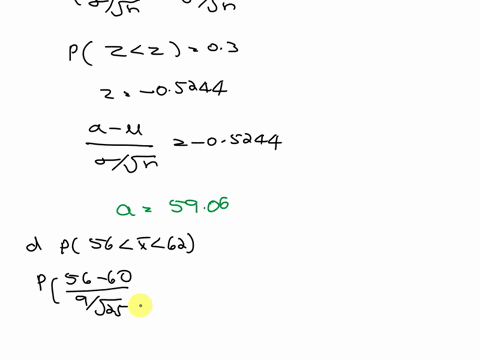 σ/√n σ/√n
P( Z<z) = 0.3
z = -0.5244
a-μ / σ/√n = -0.5244
a = 59.06
d P( 56 < x̄ < 62)
P( 56-60 / 9/√25